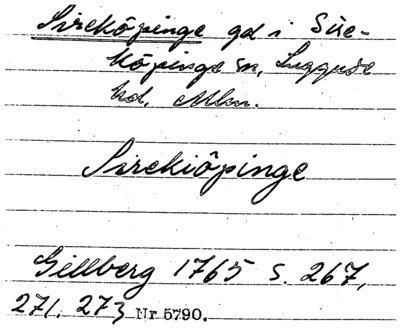 Sireköpinge gd i Sire-
köpinge sn, Luggude
hd. Mlm.
Sirekiöpinge
Gillberg 1765 s. 267,
271. 273 Nr 5790.